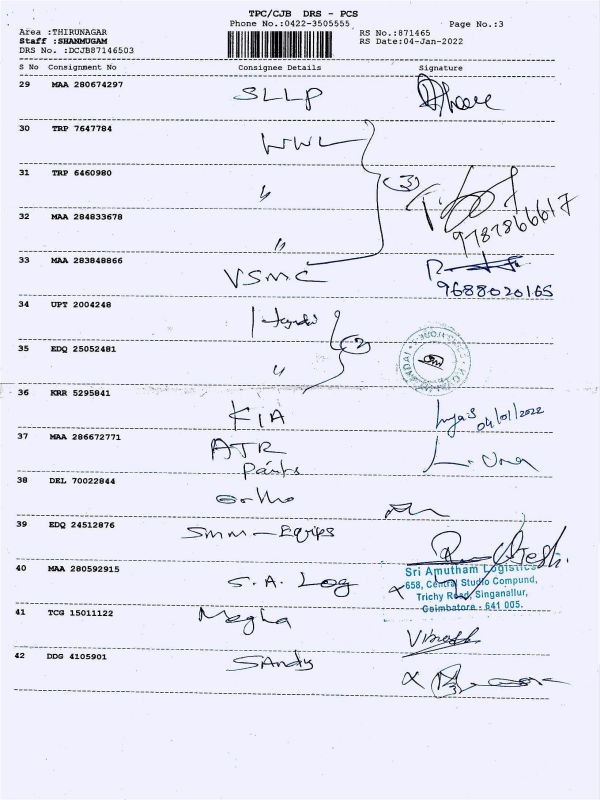 TPC/CJB DRS - PCS
Phone No.:0422-3505555
Page No.:3
Area :THIRUNAGAR
Staff :SHANMUGAM
DRS No. :DCJB87146503
RS No.:871465
RS Date:04-Jan-2022
S No Consignment No Consignee Details Signature
29 MAA 280674297 SLLP
30 TRP 7647784 WWL
31 TRP 6460980 " (3)
9787866617
32 MAA 284833678 "
33 MAA 283848866 VSMC
9688020165
34 UPT 2004248
35 EDQ 25052481 " (2)
36 KRR 5295841 KIA
04/01/2022
37 MAA 286672771 ATR
Paints
38 DEL 70022844 Ortho
39 EDQ 24512876 Smm-Equips
40 MAA 280592915 S.A. Log
Sri Amutham Logistics
658, Central Studio Compund,
Trichy Road, Singanallur,
Coimbatore - 641 005.
41 TCG 15011122 Megha
42 DDG 4105901 SAndy